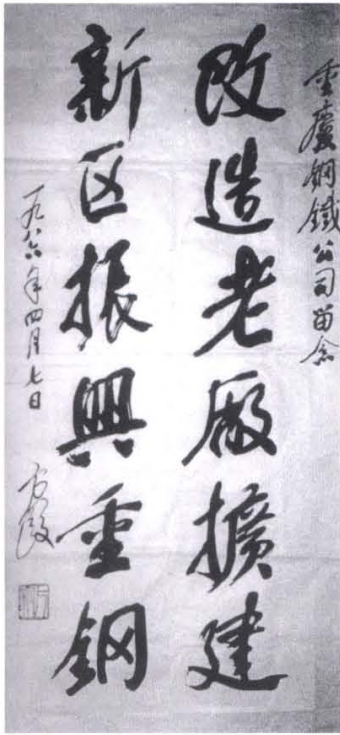 重慶鋼鐵公司留念
改造老廠擴建
新区振興重鋼
一九八六年四月七日
方毅